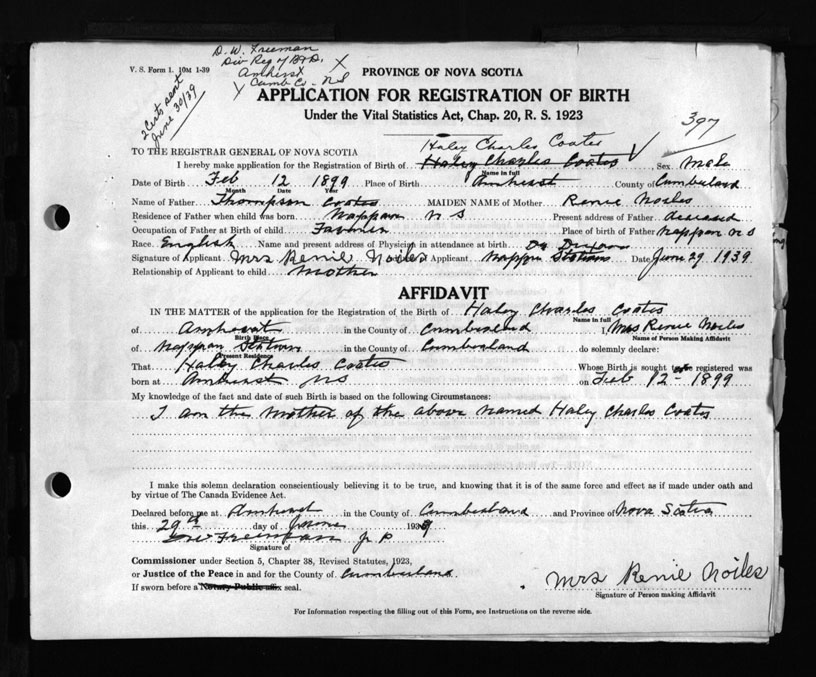 D. W. Freeman
Div Reg of B & D. X
Amherst
X Cumb Co. N S
V. S. Form 1. 10M 1-39
2 Certs sent
June 30/39
PROVINCE OF NOVA SCOTIA
APPLICATION FOR REGISTRATION OF BIRTH
Under the Vital Statistics Act, Chap. 20, R. S. 1923
397
Haley Charles Coates
TO THE REGISTRAR GENERAL OF NOVA SCOTIA
I hereby make application for the Registration of Birth of Haley Charles Coates Sex Male
Name in full
Date of Birth Feb 12 1899 Place of Birth Amherst County of Cumberland
Month Date Year
Name of Father Thompson Coates MAIDEN NAME of Mother Renie Noiles
Residence of Father when child was born Nappan N S Present address of Father deceased
Occupation of Father at Birth of child Farmer Place of birth of Father Nappan N S
Race English Name and present address of Physician in attendance at birth Dr
Signature of Applicant Mrs Renie Noiles Applicant Nappan Station Date June 29 1939
Relationship of Applicant to child mother
AFFIDAVIT
IN THE MATTER of the application for the Registration of the Birth of Haley Charles Coates
Name in full
of Amherst in the County of Cumberland I, Mrs Renie Noiles
Birth Place Name of Person Making Affidavit
of Nappan Station in the County of Cumberland do solemnly declare:
Present Residence
That Haley Charles Coates Whose Birth is sought registered was
born at Amherst NS on Feb 12 - 1899
My knowledge of the fact and date of such Birth is based on the following Circumstances:
I am the mother of the above named Haley Charles Coates
I make this solemn declaration conscientiously believing it to be true, and knowing that it is of the same force and effect as if made under oath and
by virtue of The Canada Evidence Act.
Declared before me at Amherst in the County of Cumberland and Province of Nova Scotia
this 29th day of June 1939
D W Freeman J P
Signature of
Commissioner under Section 5, Chapter 38, Revised Statutes, 1923,
or Justice of the Peace in and for the County of Cumberland
If sworn before a Notary Public affix seal.
Mrs Renie Noiles
Signature of Person making Affidavit
For Information respecting the filling out of this Form, see Instructions on the reverse side.